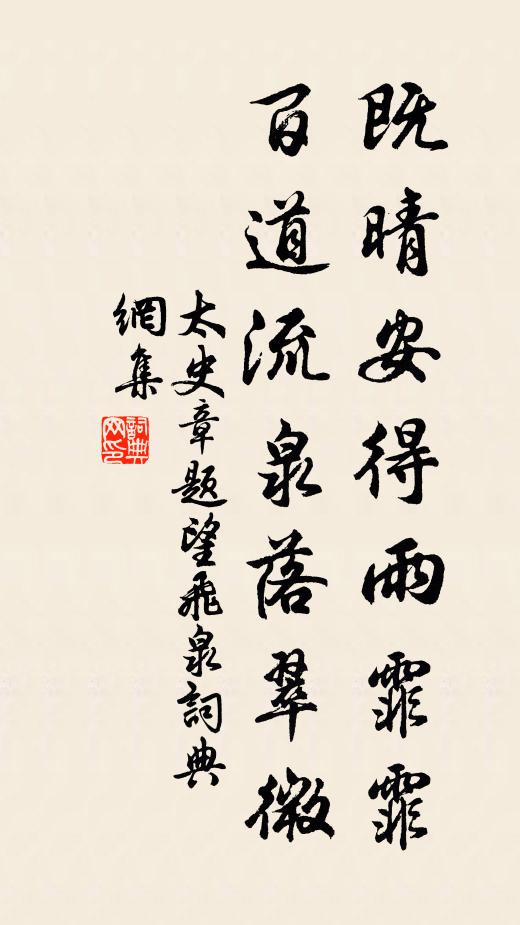 既晴安得雨霏霏
百道流泉落翠微
太史章题望飛泉詞典
網集
詞典
网印